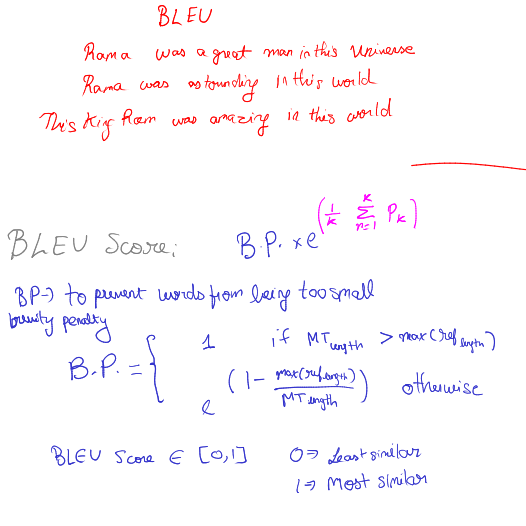 BLEU
Rama was a great man in this Universe
Rama was astounding in this world
This King Ram was amazing in this world
BLEU Score: B.P. × e^(1/K Σ_{n=1}^{K} P_K)
BP → to prevent words from being too small
brevity penalty
B.P. = { 1 if MT_length > max(ref_length)
e^(1 - max(ref_length)/MT_length) otherwise
BLEU Score ∈ [0,1] 0 ⇒ Least similar
1 ⇒ Most similar